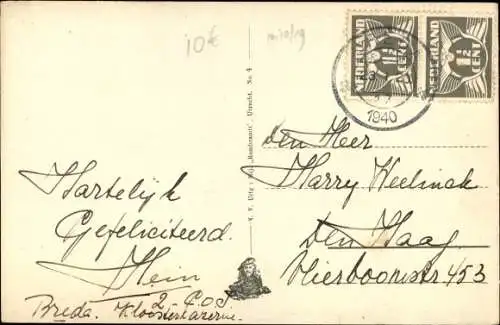 10€
NEDERLAND
1½
CENT
NEDERLAND
1½
CENT
1940
den Heer
Harry Weelinck
Den Haag
Vlierboomstr 453
Hartelijk
Gefeliciteerd.
Hein
2 COJ
Breda. Kloosterkazerne.
"Rembrandt", Utrecht. No 4